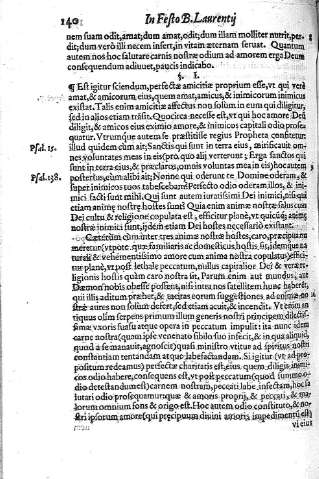 140 In Festo B. Laurentij
nem suam odit, amat; dum amat, odit; dum illam molliter nutrit, per-
dit; dum verò illi necem infert, in vitam æternam seruat. Quantum
autem nos hoc salutare carnis nostræ odium ad amorem erga Deum
consequendum adiuuet, paucis indicabo.
§. I.
¶ Est igitur sciendum, perfectæ amicitiæ proprium esse, vt qui verè
amat, & amicorum eius, quem amat, amicus, & inimicorum inimicus
existat. Talis enim amicitiæ affectus non solùm in eum qui diligitur,
sed in alios etiam trãsit. Quocirca necesse est, vt qui hoc amore Deũ
diligit, & amicos eius eximio amore, & inimicos capitali odio prose-
quatur. Vtrumque autem se præstitisse regius Propheta confitetur:
Psal. 15. illud quidem cùm ait; Sanctis qui sunt in terra eius, mirificauit om-
nes voluntates meas in eis; pro quo alij verterunt; Ergà sanctos qui
sunt in terra eius, & præclaros, omnis voluntas mea in eis; hoc autem
Psal. 138. posterius, cùm alibi ait; Nonne qui oderunt te Domine oderam, &
super inimicos tuos tabescebam? Perfecto odio oderam illos, & ini-
mici facti sunt mihi. Qui sunt autem iuratissimi Dei inimici, nisi qui
etiam animæ nostræ hostes sunt? Quia enim animæ nostræ salus cum
Dei cultu & religione copulata est, efficitur planè, vt quicũq; animæ
nostræ inimici sunt, ijdem etiam Dei hostes necessariò existant.
Cæterùm cùm tres sint animæ nostræ hostes, caro, præcipua nu-
meretur; vtpote quæ familiaris ac domesticus hostis sit, idemque na-
turali & vehementissimo amore cum anima nostra copulatus; effici-
tur planè, vt post letiale peccatum, nullus capitalior Dei & veræ re-
ligionis hostis quàm caro nostra sit. Parum enim aut mundus, aut
Dæmon nobis obesse possent, nisi intra nos satellitem hunc haberet,
qui illis aditum præbet, & tacitas eorum suggestiones ad animæ no-
stræ aures non solùm defert, sed etiam acuit, & incendit. Vt enim an-
tiquus olim serpens primum illum generis nostri principem, dilectis-
simæ vxoris suasu atque opera in peccatum impulit: ita nunc idem
carne nostra (quam ipse venenato sibilo suo infecit, & in qua aliquid,
quod à se manauit, agnoscit) quasi ministro vtitur ad spiritus nostri
constantiam tentandam atque labefactandam. Si igitur (vt ad pro-
positum redeamus) perfectæ charitatis est, eius, quem diligis, inimi-
cos odio habere, consequens est, vt post peccatum (quod summo o-
dio detestandum est) carnem nostram, peccati labe infectam, hoc sa-
lutari odio prosequamur, quæ & amoris proprij, & peccati, & ma-
lorum omnium fons & origo est. Hoc autem odio constituto, & no-
stri ipsorum amore (qui præcipuum diuini amoris impedimentũ est)
vi eius